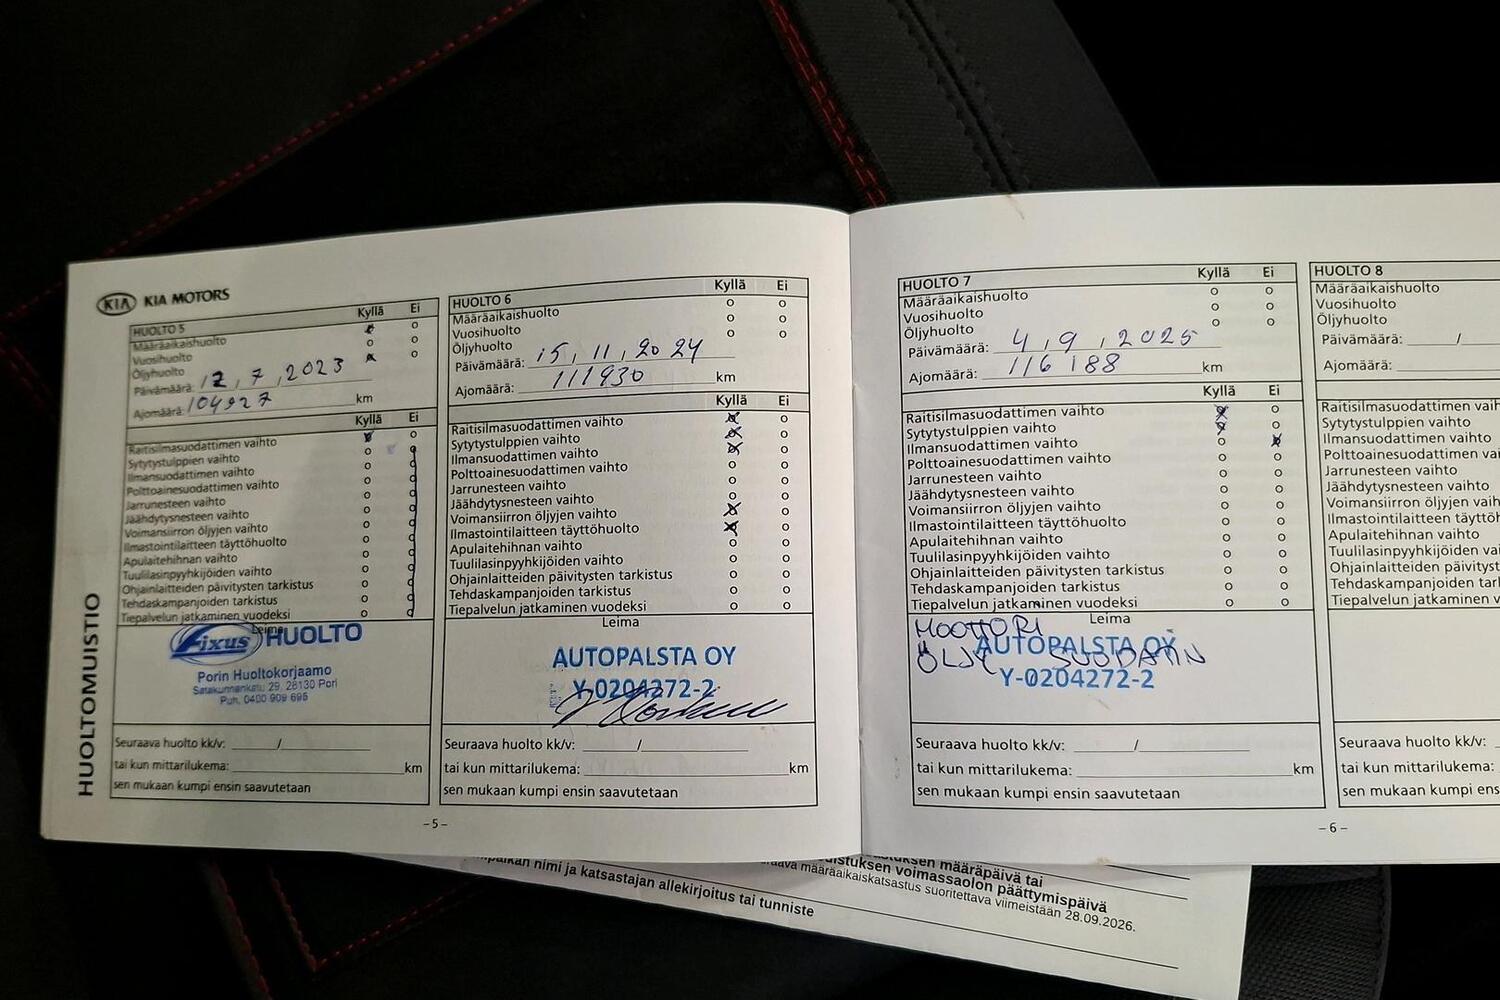 KIA KIA MOTORS
HUOLTOMUISTIO
HUOLTO 5 Kyllä Ei
Määräaikaishuolto
Vuosihuolto
Öljyhuolto
Päivämäärä: 12, 7, 2023
Ajomäärä: 104927 km
Kyllä Ei
Raitisilmasuodattimen vaihto
Sytytystulppien vaihto
Ilmansuodattimen vaihto
Polttoainesuodattimen vaihto
Jarrunesteen vaihto
Jäähdytysnesteen vaihto
Voimansiirron öljyjen vaihto
Ilmastointilaitteen täyttöhuolto
Apulaitehihnan vaihto
Tuulilasinpyyhkijöiden vaihto
Ohjainlaitteiden päivitysten tarkistus
Tehdaskampanjoiden tarkistus
Tiepalvelun jatkaminen vuodeksi
Leima
Fixus HUOLTO
Porin Huoltokorjaamo
Satakunnankatu 29, 28130 Pori
Puh. 0400 909 695
Seuraava huolto kk/v: /
tai kun mittarilukema: km
sen mukaan kumpi ensin saavutetaan
HUOLTO 6 Kyllä Ei
Määräaikaishuolto
Vuosihuolto
Öljyhuolto
Päivämäärä: 15, 11, 2024
Ajomäärä: 111930 km
Kyllä Ei
Raitisilmasuodattimen vaihto
Sytytystulppien vaihto
Ilmansuodattimen vaihto
Polttoainesuodattimen vaihto
Jarrunesteen vaihto
Jäähdytysnesteen vaihto
Voimansiirron öljyjen vaihto
Ilmastointilaitteen täyttöhuolto
Apulaitehihnan vaihto
Tuulilasinpyyhkijöiden vaihto
Ohjainlaitteiden päivitysten tarkistus
Tehdaskampanjoiden tarkistus
Tiepalvelun jatkaminen vuodeksi
Leima
AUTOPALSTA OY
Y-0204272-2
Seuraava huolto kk/v: /
tai kun mittarilukema: km
sen mukaan kumpi ensin saavutetaan
- 5 -
HUOLTO 7 Kyllä Ei
Määräaikaishuolto
Vuosihuolto
Öljyhuolto
Päivämäärä: 4, 9, 2025
Ajomäärä: 116188 km
Kyllä Ei
Raitisilmasuodattimen vaihto
Sytytystulppien vaihto
Ilmansuodattimen vaihto
Polttoainesuodattimen vaihto
Jarrunesteen vaihto
Jäähdytysnesteen vaihto
Voimansiirron öljyjen vaihto
Ilmastointilaitteen täyttöhuolto
Apulaitehihnan vaihto
Tuulilasinpyyhkijöiden vaihto
Ohjainlaitteiden päivitysten tarkistus
Tehdaskampanjoiden tarkistus
Tiepalvelun jatkaminen vuodeksi
Leima
MOOTTORI
ÖLJY SUODATIN
AUTOPALSTA OY
Y-0204272-2
Seuraava huolto kk/v: /
tai kun mittarilukema: km
sen mukaan kumpi ensin saavutetaan
HUOLTO 8
Määräaikaishuolto
Vuosihuolto
Öljyhuolto
Päivämäärä: /
Ajomäärä:
Raitisilmasuodattimen
Sytytystulppien vaihto
Ilmansuodattimen vaihto
Polttoainesuodattimen
Jarrunesteen vaihto
Jäähdytysnesteen vaihto
Voimansiirron öljyjen
Ilmastointilaitteen
Apulaitehihnan vaihto
Tuulilasinpyyhkijöiden
Ohjainlaitteiden
Tehdaskampanjoiden
Tiepalvelun jatkaminen
Seuraava huolto kk/v:
tai kun mittarilukema:
sen mukaan kumpi ens
- 6 -
nimi ja katsastajan allekirjoitus tai tunniste
määräpäivä tai
voimassaolon päättymispäivä
määräaikaiskatsastus suoritettava viimeistään 28.09.2026.